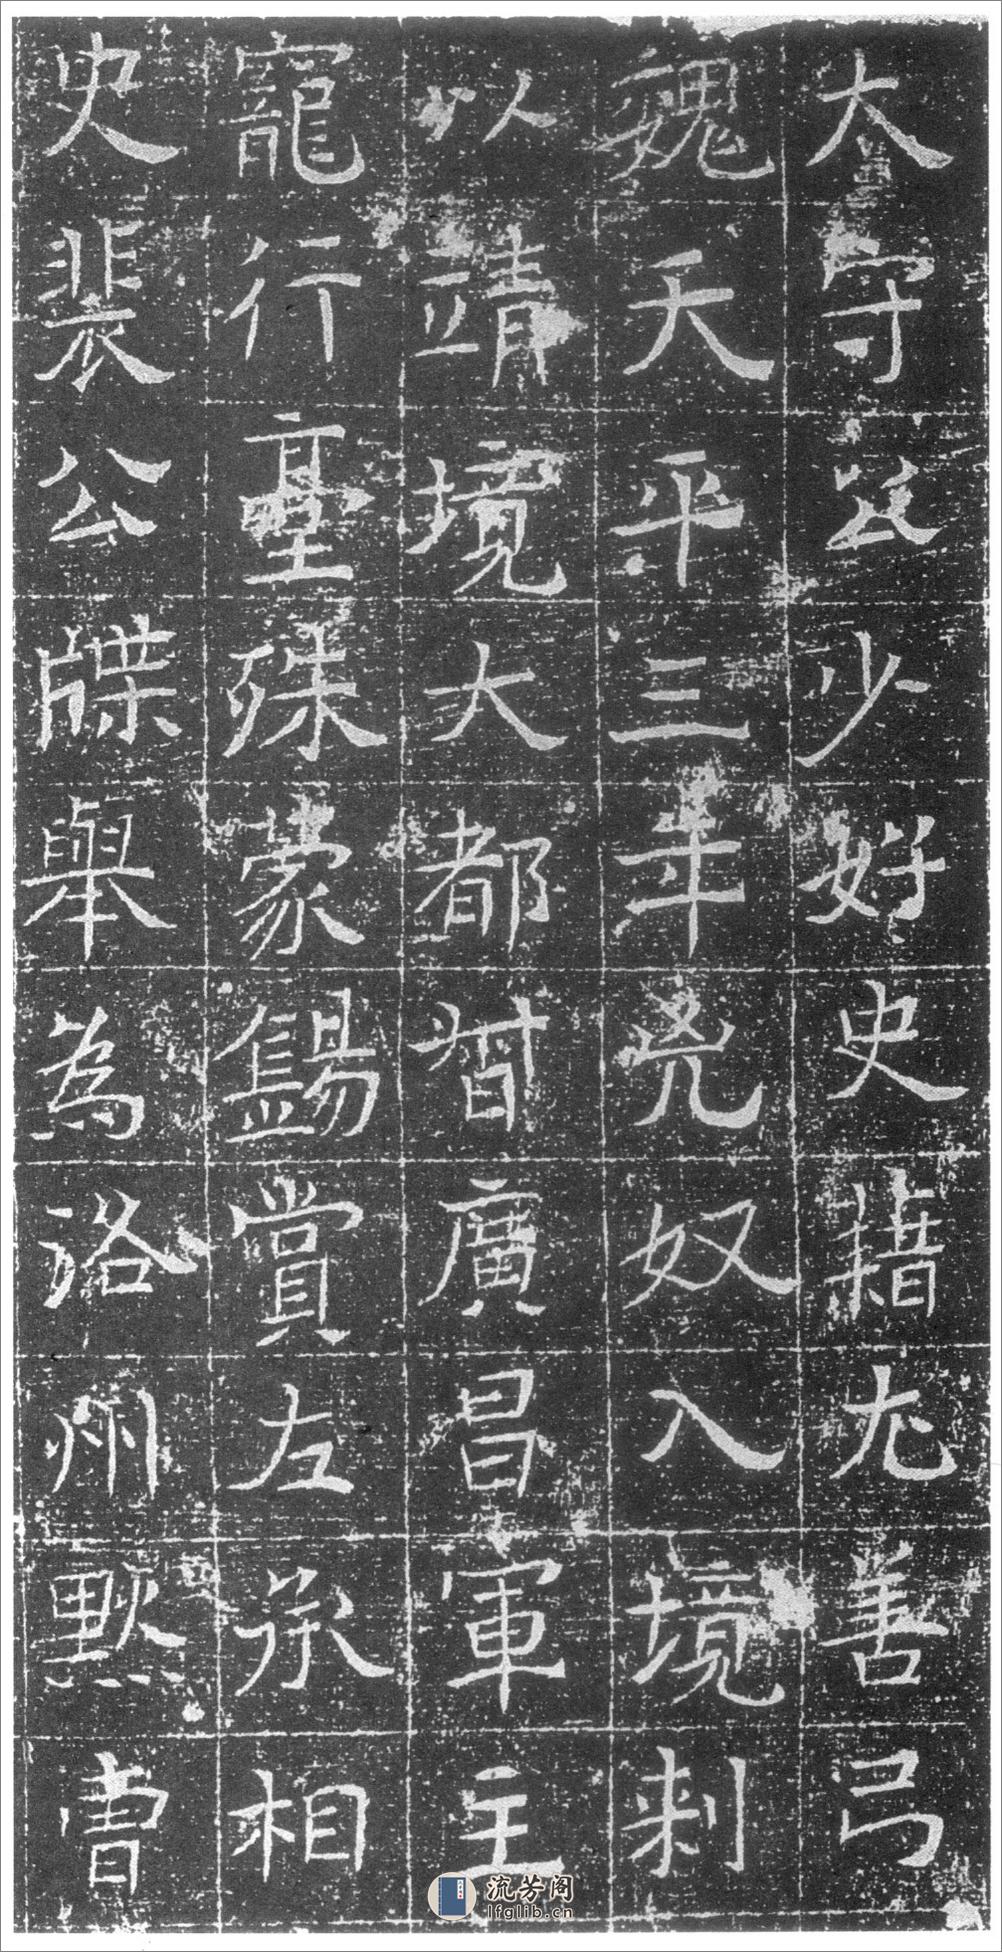 太守公少好史藉尤善弓
魏天平三年兇奴入境刺
以靖境大都督廣昌軍主
寵行臺殊蒙錫賞左丞相
史裴公牒舉為洛州默曹
流芳阁
lfglib.cn